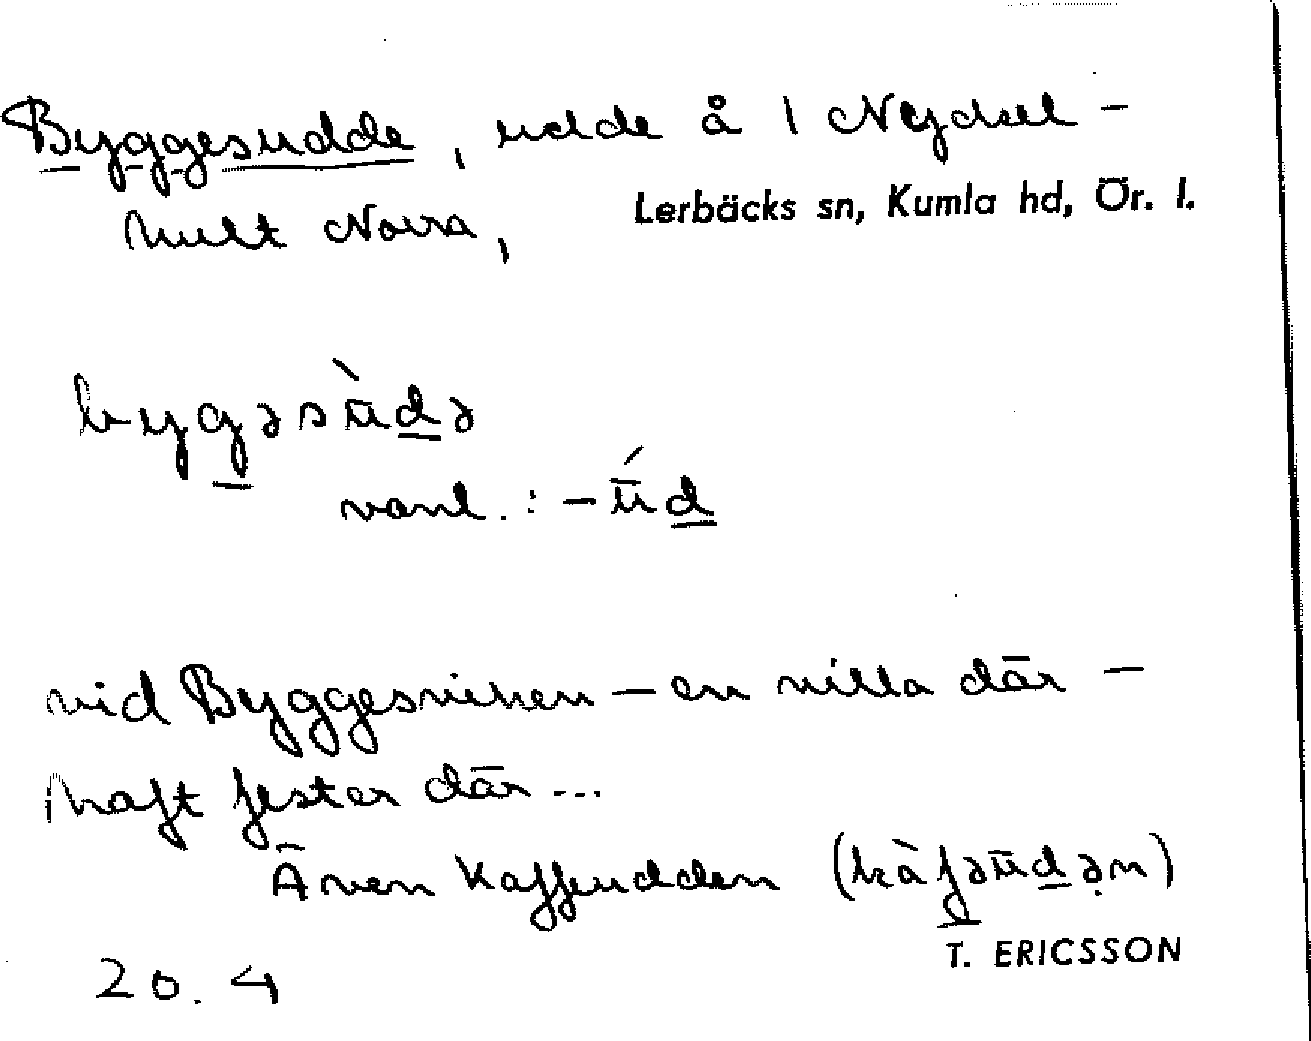 Byggesudde, udde å 1 Nydsel-
hult Norra,
Lerbäcks sn, Kumla hd, Ör. l.
bygəsùdə
vanl. : -úd
vid Byggesviken - en villa där -
haft fester där ...
Även Kaffeudden (kàfəudən)
T. ERICSSON
20. 4